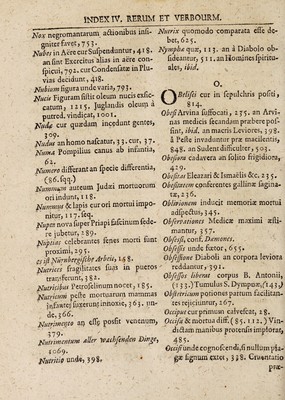 INDEX IV. RERUM ET VERBOURM.
Nox negromantarum actionibus insigniter favet, 753.
Nubes in Aëre cur Suspenduntur, 418.
an sint Exercitus alias in aëre conspicui, 792. cur Condensatæ in Pluvias decidunt, 418.
Nubium figura unde varia, 793.
Nucis Figuram fistit oleum nucis exsiccatum, 1215. Juglandis oleum à putred. vindicat, 1001.
Nudæ cur quædam incedunt gentes, 309.
Nudus an homo nascatur, 33. cur. 37.
Numa Pompilius canus ab infantia, 62.
Numero differant an specie differentia, (86. sqq.)
Nummum auteum Judæi mortuorum ori indunt, 118.
Nummus & lapis cur ori mortui imponitur, 117. seq.
Nupta nova super Priapi fascinum sedere jubetur, 289.
Nuptias celebrantes senes morti sunt proximi, 295.
es ist Nürnbergische Arbeit, 148.
Nutrices fragilitates suas in pueros transferunt, 382.
Nutricibus Petroselinum nocet, 185.
Nutricum peste mortuarum mammas infantes suxerunt innoxie, 363. unde, 366.
Nutrimenta an esse possit venenum, 379.
Nutrimentum aller wachsenden Dinge, 1069.
Nutritio unde, 398.
Nutrix quomodo comparata esse debet, 625.
Nymphæ quæ, 113. an à Diabolo obsideantur, 511. an Homines spirituales, ibid.
O.
Obelisci cur in sepulchris positi, 814.
Obesi Arvina suffocati, 235. an Arvinas medicis secandam præbere possint, ibid. an macris Leviores, 398.
à Peste invaduntur præ macilentis, 848. an Sudent difficulter, 503.
Obesorum cadavera an solito frigidiora, 429.
Obesitas Eleazari & Ismaëlis &c. 235.
Obesitatem conferentes gallinæ saginatæ, 236.
Oblivionem inducit memoriæ mortui adspectus, 345.
Observationes Medicæ maximi æstimantur, 357.
Obsessi, conf. Dæmones.
Obsessis unde fœtor, 655.
Obsessione Diaboli an corpora leviora reddantur, 391.
Obsessio liberat corpus B. Antonii, (133.) Tumulus S. Dympnæ, (143.)
Obstetricum potiones partum facilitantes rejiciuntur, 167.
Occiput cur primum calvescat, 28.
Occisa & mortua diff. (85. 112.) Vindictam manibus protensis implorat, 485.
Occisi unde cognoscendi, si nullum plagæ signum extet, 338. Cruentario
præ-